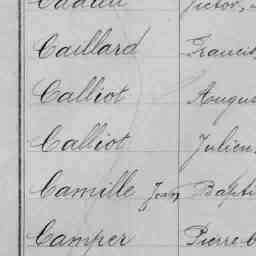 Victor,
Caillard Francis
Calliot Augus
Calliot Julien
Camille Jean Bapti
Camper Pierre